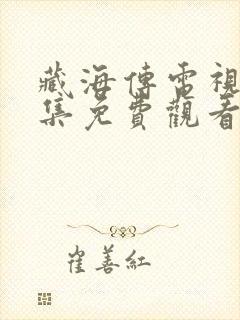 藏海傳電視
集免費觀看
崔善紅